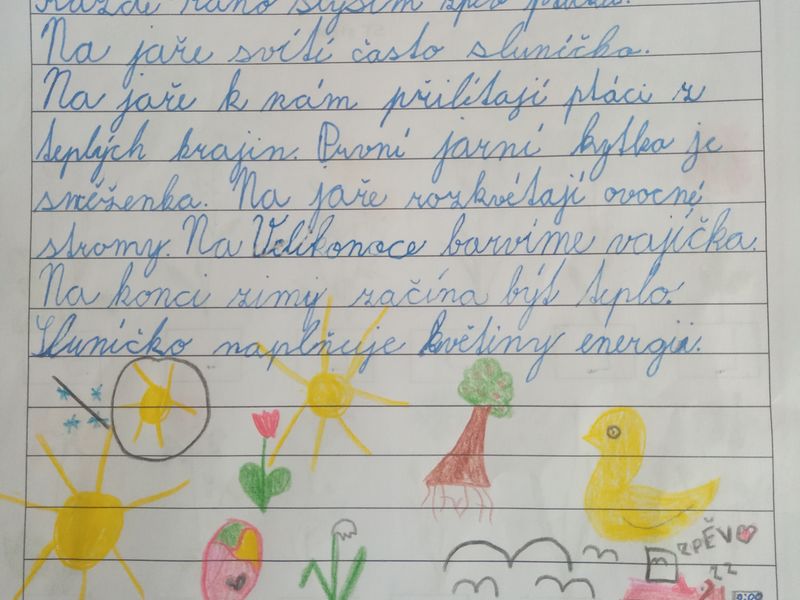 Každé ráno slyším zpěv ptáků.
Na jaře svítí často sluníčko.
Na jaře k nám přilítají ptáci z
teplých krajin. První jarní kytka je
sněženka. Na jaře rozkvétají ovocné
stromy. Na Velikonoce barvíme vajíčka.
Na konci zimy začíná být teplo.
Sluníčko naplňuje květiny energií.
ZPĚV